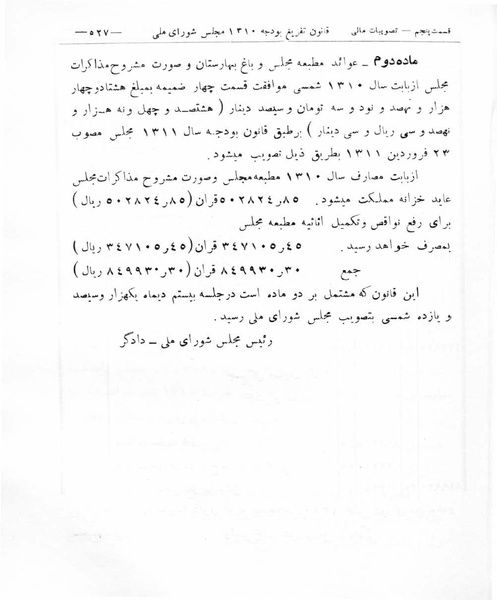 قسمت پنجم — تصویبات مالی قانون تفریغ بودجه ۱۳۱۰ مجلس شورای ملی —۵۲۷—
ماده دوم ـ عوائد مطبعه مجلس و باغ بهارستان و صورت مشروح مذاکرات
مجلس ازبابت سال ۱۳۱۰ شمسی موافقت قسمت چهار ضمیمه بمبلغ هشتاد و چهار
هزار و نهصد و نود و سه تومان و سیصد دینار ( هشتصد و چهل ونه هزار و
نهصد و سی ریال و سی دینار ) برطبق قانون بودجه سال ۱۳۱۱ مجلس مصوب
۲۳ فروردین ۱۳۱۱ بطریق ذیل تصویب میشود .
ازبابت مصارف سال ۱۳۱۰ مطبعه مجلس وصورت مشروح مذاکرات مجلس
عاید خزانه مملکت میشود . ۸۵ر۵۰۲۸۲۴ قران (۸۵ر۵۰۲۸۲۴ ریال )
برای رفع نواقص وتکمیل اثاثیه مطبعه مجلس
بمصرف خواهد رسید . ۴۵ر۳۴۷۱۰۵ قران (۴۵ر۳۴۷۱۰۵ ریال )
جمع ۳۰ر۸۴۹۹۳۰ قران (۳۰ر۸۴۹۹۳۰ ریال )
این قانون که مشتمل بر دو ماده است درجلسه بیستم دیماه یکهزار وسیصد
و یازده شمسی بتصویب مجلس شورای ملی رسید .
رئیس مجلس شورای ملی ـ دادگر